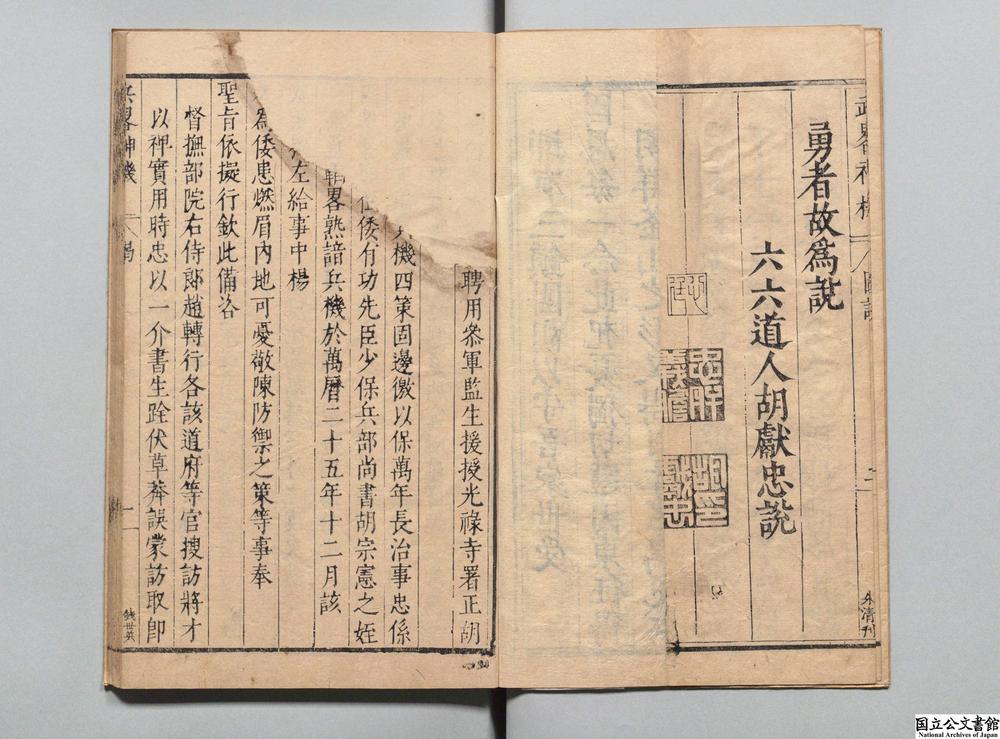 圖說
二
朱清刊
勇者故爲說
六六道人胡獻忠說
忠肝義膽
胡印獻忠
聘用叅軍監生援授光祿寺署正胡
機四策固邊徼以保萬年長治事忠係
倭有功先臣少保兵部尚書胡宗憲之姪
韜畧熟諳兵機於萬曆二十五年十二月該
左給事中楊
爲倭患燃眉内地可憂敬陳防禦之策等事奉
聖旨依擬行欽此備咨
督撫部院右侍郎趙轉行各該道府等官搜訪將才
以裨實用時忠以一介書生跧伏草莽誤蒙訪取即
畧神機
揭
一
錢世英
国立公文書館
National Archives of Japan